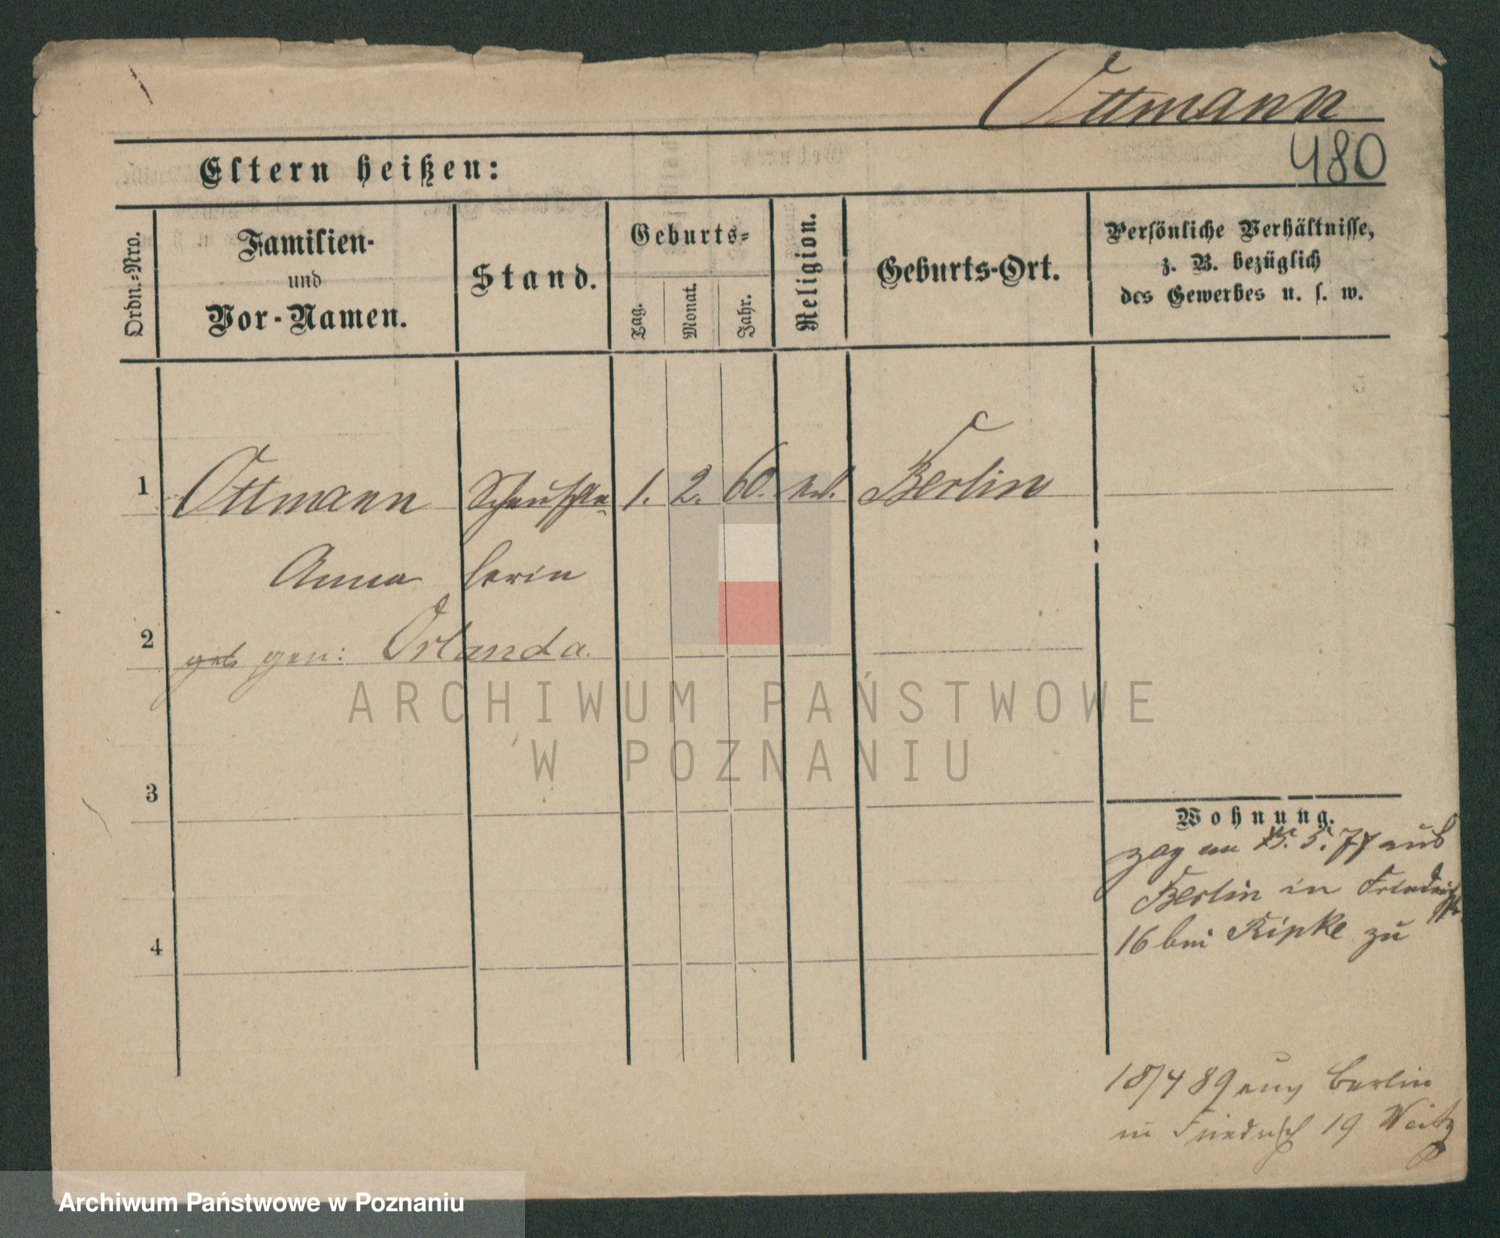 Ottmann
480
Eltern heißen:
Ordn.-Nro.
Familien-
und
Vor-Namen.
Stand.
Geburts-
Tag.
Monat.
Jahr.
Religion.
Geburts-Ort.
Persönliche Verhältnisse,
z. B. bezüglich
des Gewerbes u. s. w.
1 Ottmann Schauspie- 1. 2. 60. Berlin
Anna lerin
2 geb gen: Orlanda.
ARCHIWUM PAŃSTWOWE
W POZNANIU
3
Wohnung.
zog am 5. 77 aus
Berlin in Friedrichst
4 16 bei Ripke zu
18/4 89 aus Berlin
in Friedrsch 19 Weitz
Archiwum Państwowe w Poznaniu